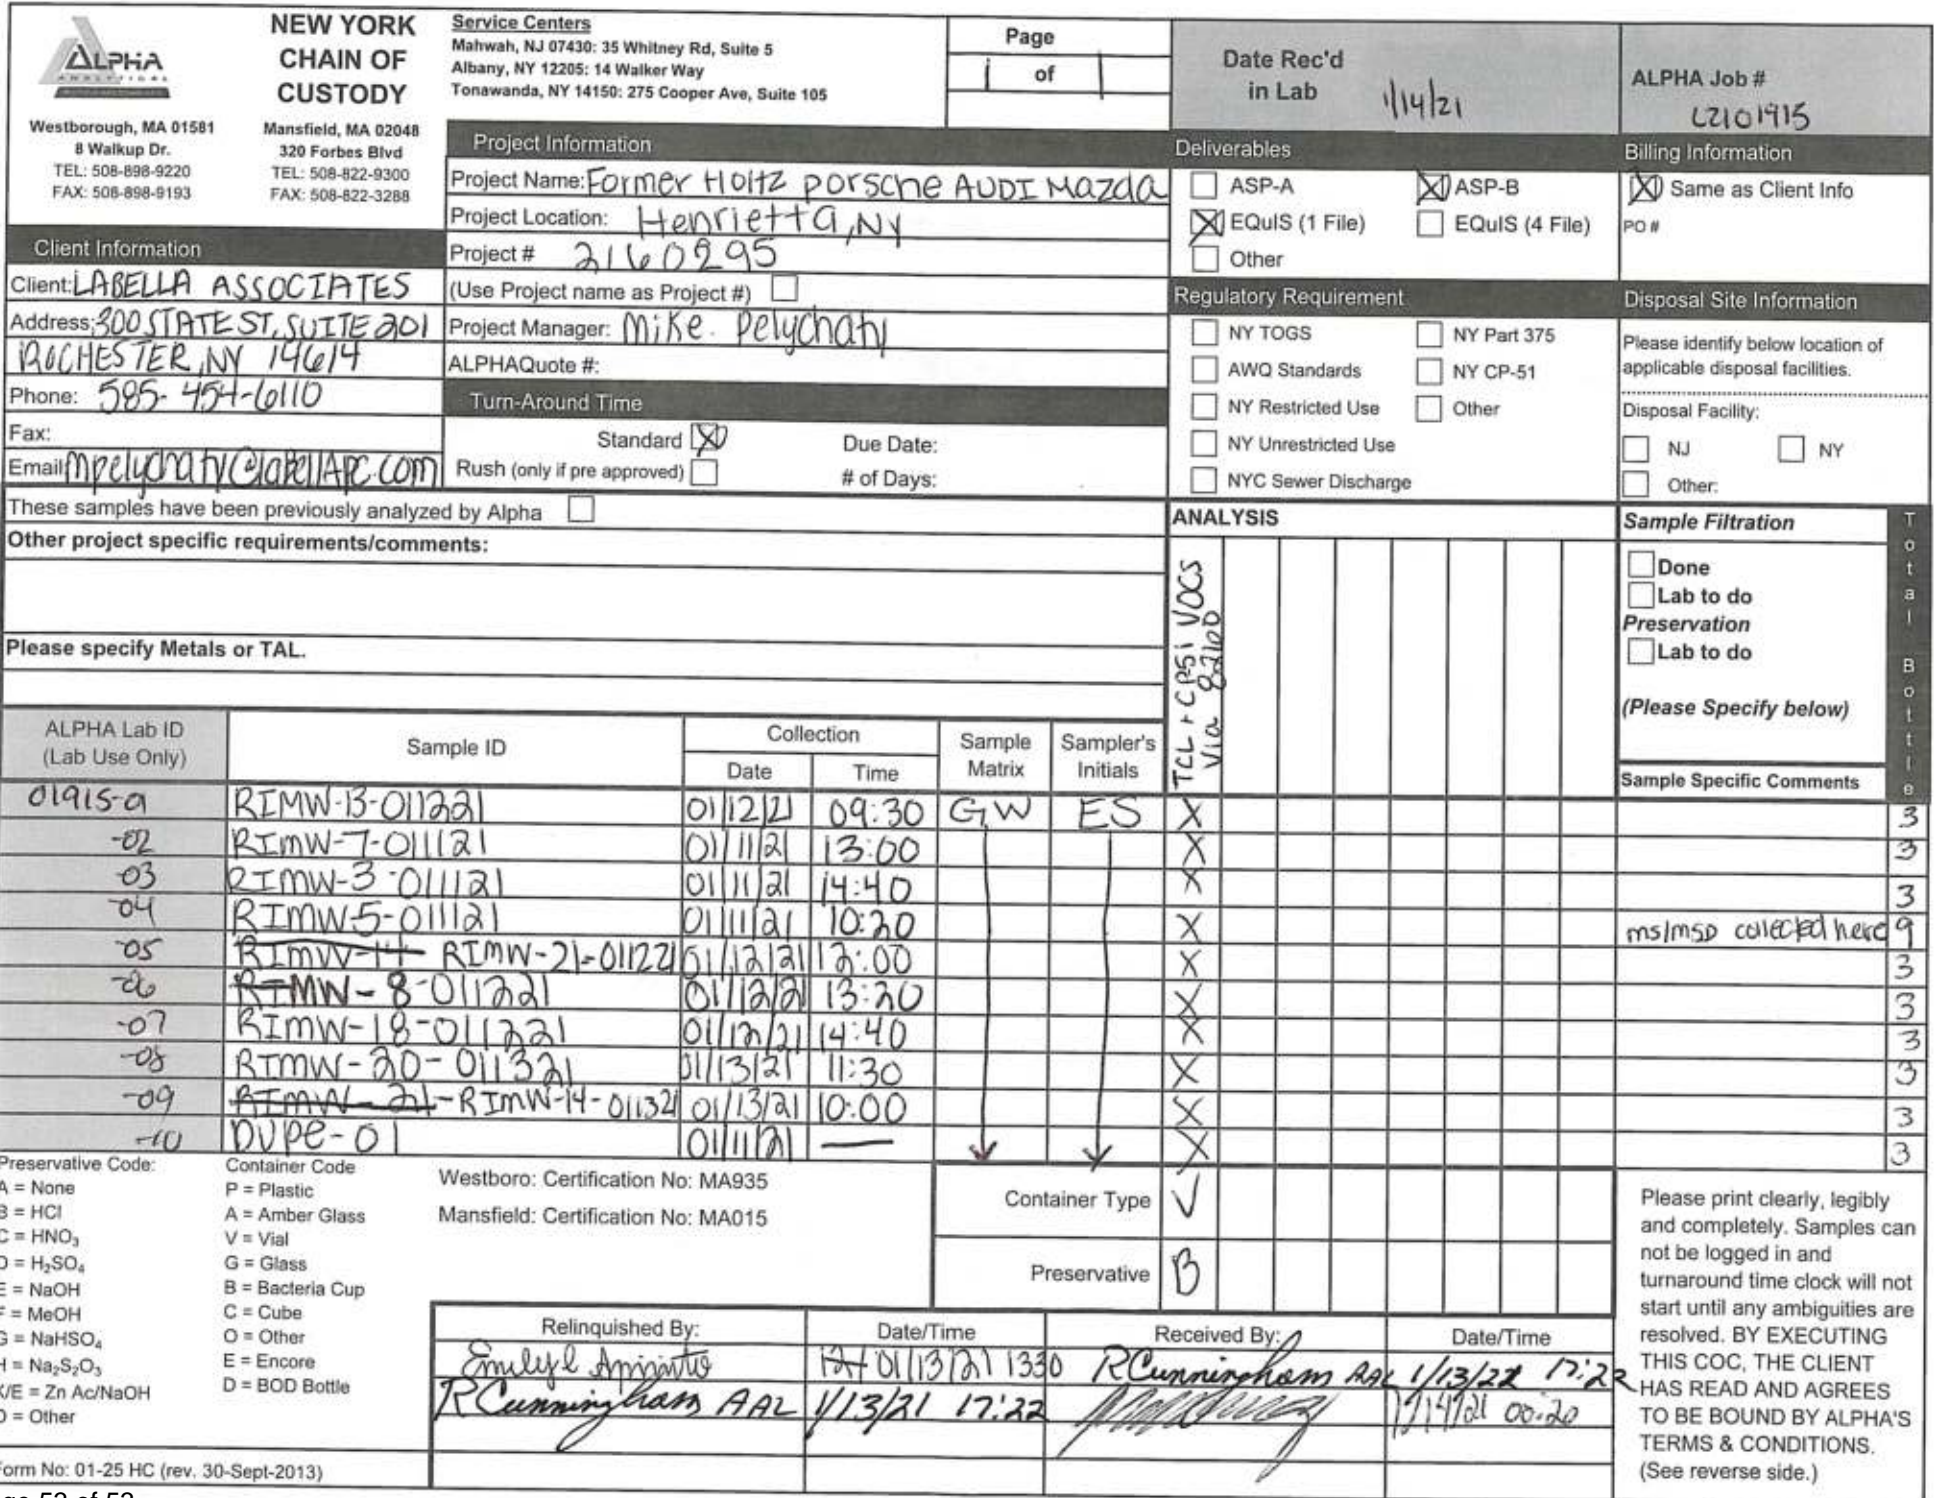 ALPHA
ANALYTICAL
NEW YORK
CHAIN OF
CUSTODY
Westborough, MA 01581
8 Walkup Dr.
TEL: 508-898-9220
FAX: 508-898-9193
Mansfield, MA 02048
320 Forbes Blvd
TEL: 508-822-9300
FAX: 508-822-3288
Service Centers
Mahwah, NJ 07430: 35 Whitney Rd, Suite 5
Albany, NY 12205: 14 Walker Way
Tonawanda, NY 14150: 275 Cooper Ave, Suite 105
Page
1 of 1
Date Rec'd
in Lab
1/14/21
ALPHA Job #
L2101915
Project Information
Project Name: Former Holtz Porsche AUDI Mazda
Project Location: Henrietta, NY
Project # 2160295
(Use Project name as Project #)
Project Manager: Mike Pelychaty
ALPHAQuote #:
Client Information
Client: LABELLA ASSOCIATES
Address: 300 STATE ST, SUITE 201
ROCHESTER, NY 14614
Phone: 585-454-6110
Fax:
Email: mpelychaty@labellapc.com
Turn-Around Time
Standard X Due Date:
Rush (only if pre approved) # of Days:
Deliverables
ASP-A X ASP-B
X EQuIS (1 File) EQuIS (4 File)
Other
Billing Information
X Same as Client Info
PO #
Regulatory Requirement
NY TOGS NY Part 375
AWQ Standards NY CP-51
NY Restricted Use Other
NY Unrestricted Use
NYC Sewer Discharge
Disposal Site Information
Please identify below location of
applicable disposal facilities.
Disposal Facility:
NJ NY
Other:
These samples have been previously analyzed by Alpha
Other project specific requirements/comments:
Please specify Metals or TAL.
ANALYSIS
TCL + CP51 VOCS
Via 8260
Sample Filtration
Done
Lab to do
Preservation
Lab to do
(Please Specify below)
Total Bottle
ALPHA Lab ID
(Lab Use Only)
Sample ID
Collection
Date Time
Sample
Matrix
Sampler's
Initials
Sample Specific Comments
01915-01 RIMW-13-011221 01/12/21 09:30 GW ES X 3
-02 RIMW-7-011121 01/11/21 13:00 X 3
-03 RIMW-3-011121 01/11/21 14:40 X 3
-04 RIMW-5-011121 01/11/21 10:20 X ms/msD collected here 9
-05 RIMW-14 RIMW-21-011221 01/12/21 12:00 X 3
-06 RIMW-8-011221 01/12/21 13:20 X 3
-07 RIMW-18-011221 01/12/21 14:40 X 3
-08 RIMW-20-011321 01/13/21 11:30 X 3
-09 RIMW-21-RIMW-14-011321 01/13/21 10:00 X 3
-10 DUPE-01 01/11/21 — X 3
Preservative Code:
A = None
B = HCl
C = HNO₃
D = H₂SO₄
E = NaOH
F = MeOH
G = NaHSO₄
H = Na₂S₂O₃
K/E = Zn Ac/NaOH
O = Other
Container Code
P = Plastic
A = Amber Glass
V = Vial
G = Glass
B = Bacteria Cup
C = Cube
O = Other
E = Encore
D = BOD Bottle
Westboro: Certification No: MA935
Mansfield: Certification No: MA015
Container Type V
Preservative B
Relinquished By: Date/Time Received By: Date/Time
01/13/21 1330 RCunningham AAL 1/13/21 17:22
RCunningham AAL 1/13/21 17:22 1/14/21 00:20
Please print clearly, legibly
and completely. Samples can
not be logged in and
turnaround time clock will not
start until any ambiguities are
resolved. BY EXECUTING
THIS COC, THE CLIENT
HAS READ AND AGREES
TO BE BOUND BY ALPHA'S
TERMS & CONDITIONS.
(See reverse side.)
Form No: 01-25 HC (rev. 30-Sept-2013)